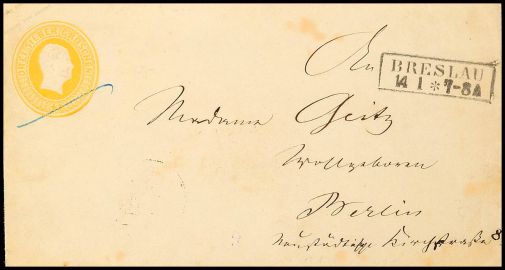 An
BRESLAU
14 1 * 7-8A
Madame Geitz
Wollgeboren
Berlin
Neustädtische Kirchstraße 8